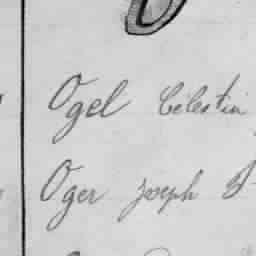 O
Ogel Célestin
Oger Joseph